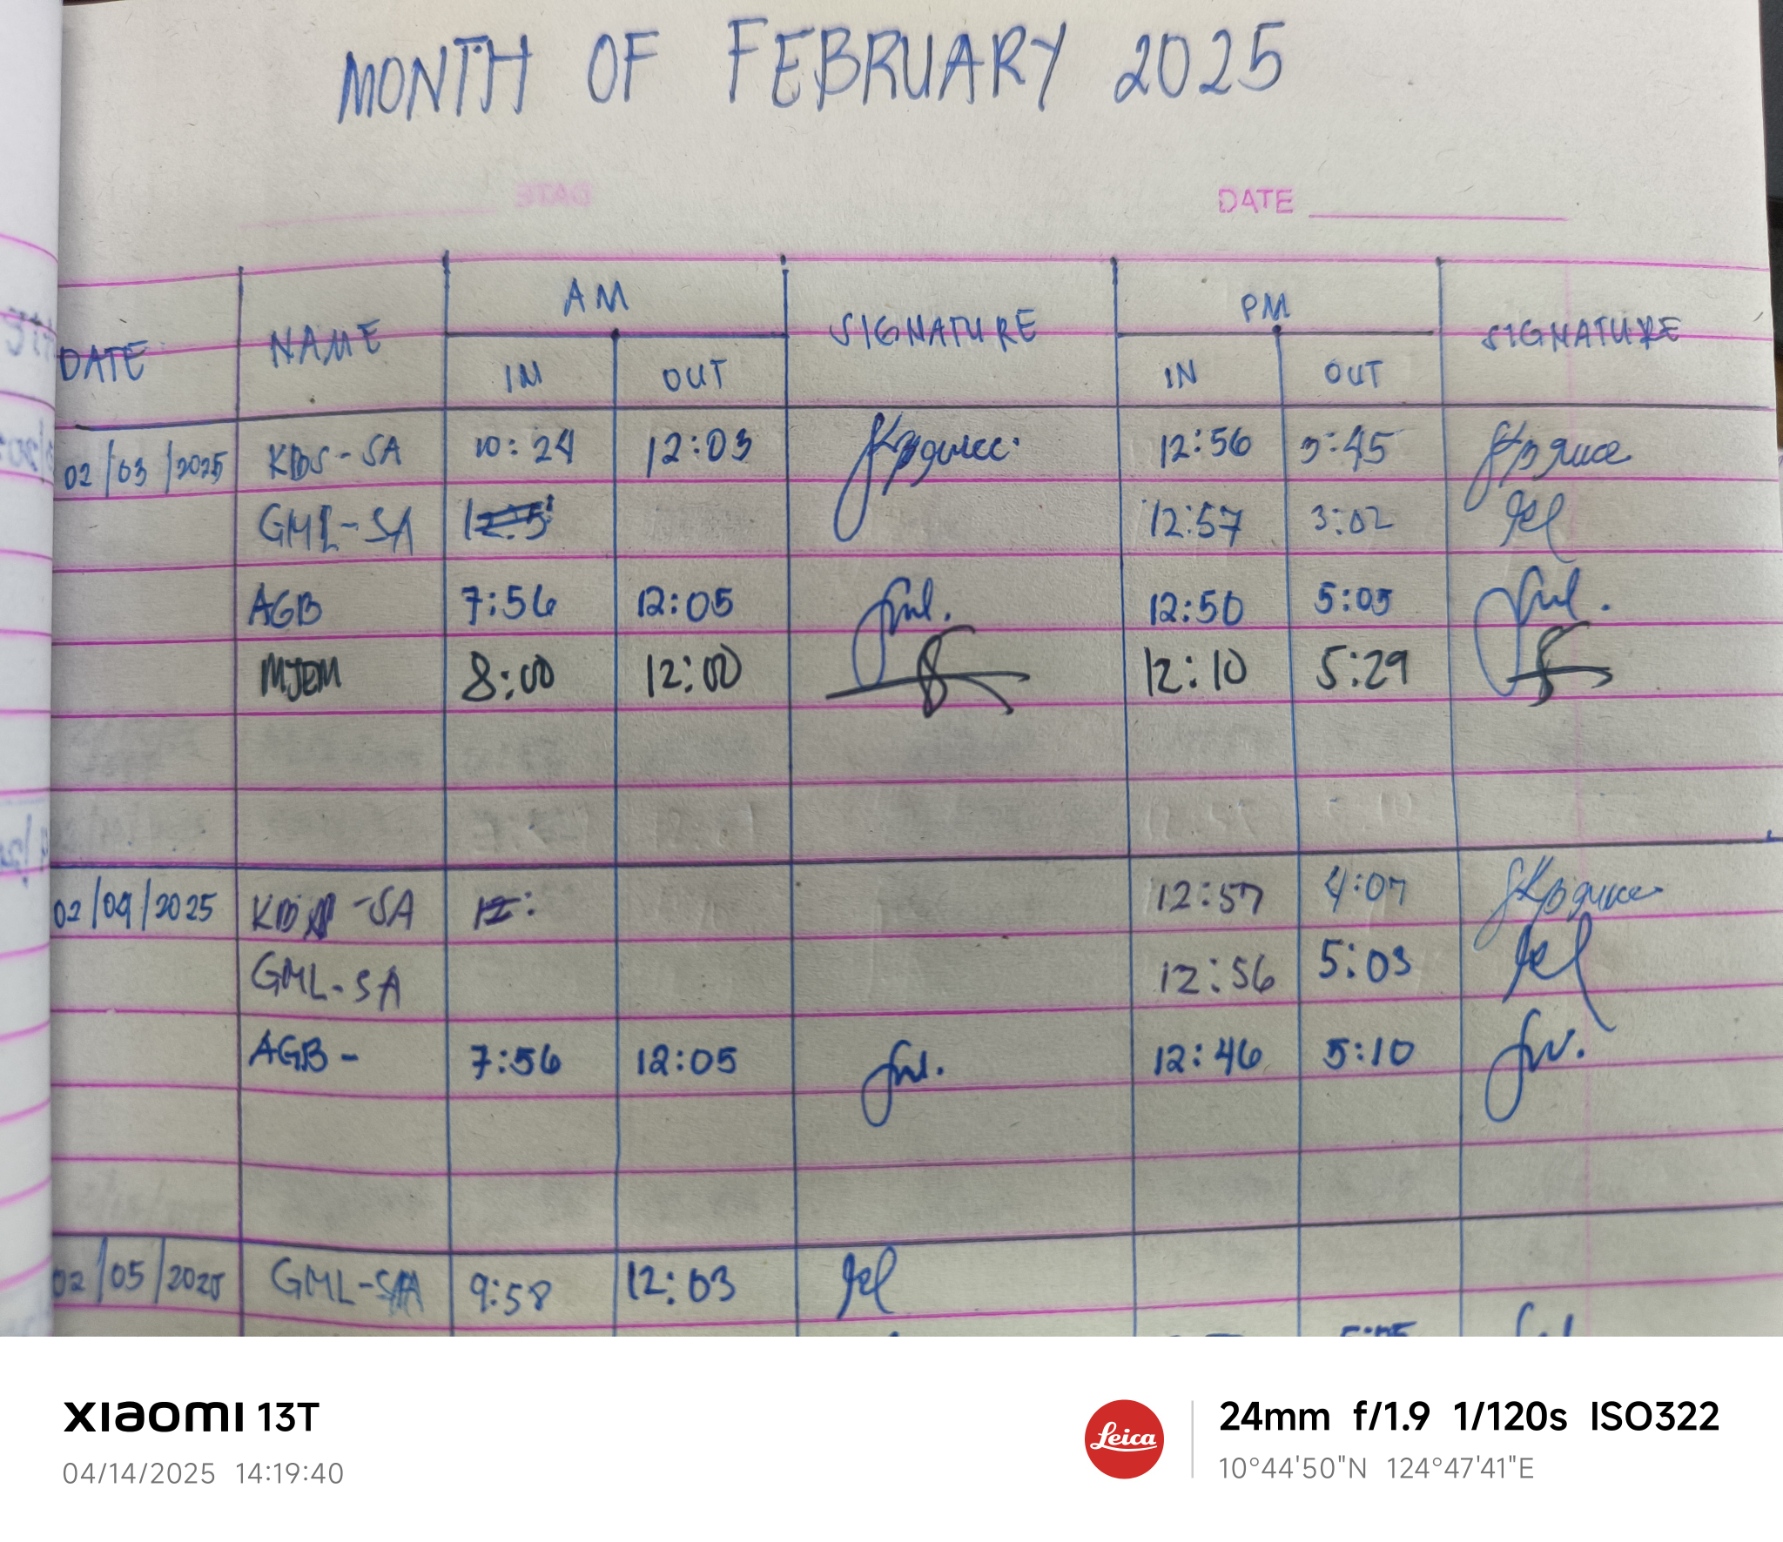 MONTH OF FEBRUARY 2025
DATE
DATE NAME AM SIGNATURE PM SIGNATURE
IN OUT IN OUT
02/03/2025 KDS-SA 10:24 12:03 12:56 3:45
GML-SA 12:57 3:02
AGB 7:56 12:05 12:50 5:05
MJDM 8:00 12:00 12:10 5:29
02/04/2025 KD -SA 12: 12:57 4:07
GML-SA 12:56 5:03
AGB - 7:56 12:05 12:46 5:10
02/05/2025 GML-SA 9:58 12:03
XIAOMI 13T
04/14/2025 14:19:40
Leica
24mm f/1.9 1/120s ISO322
10°44'50"N 124°47'41"E